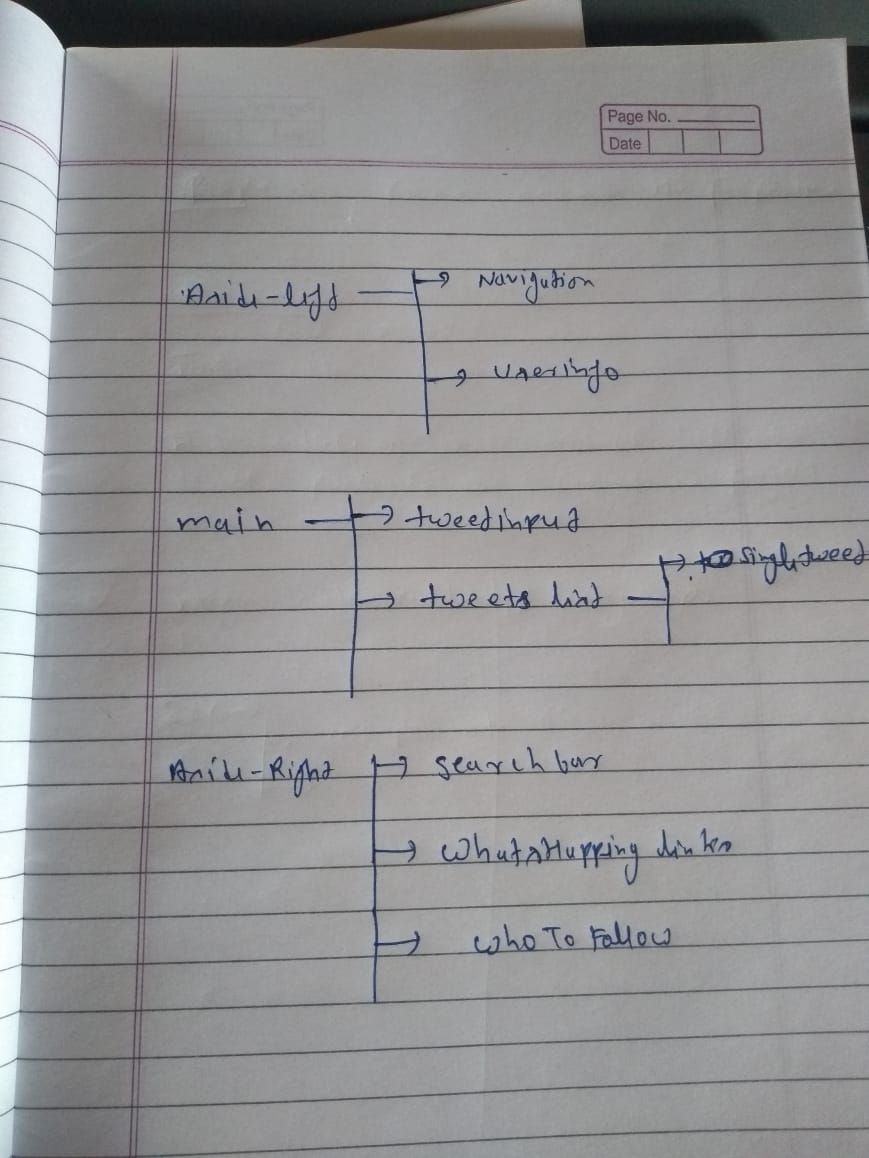 Page No.
Date
Aside-left → Navigation
→ userinfo
main → tweetinput
→ singletweet
→ tweets list
Aside-Right → Search bar
→ WhatsHapping links
→ Who To Follow